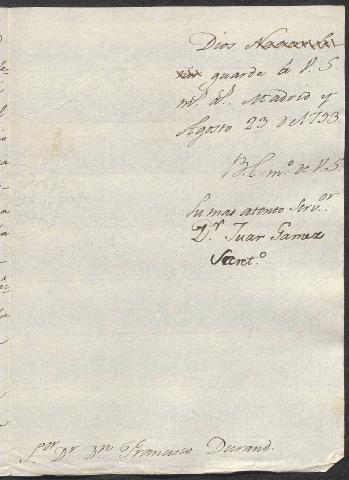 Dios
guarde à V.S.
m.s a.s Madrid y
Agosto 23 de 1793.
B.l.m.o de V.S.
Su mas atento Serv.or
D.r Juan Gamez
Secret.o
S.or D.r D.n Francisco Durand.